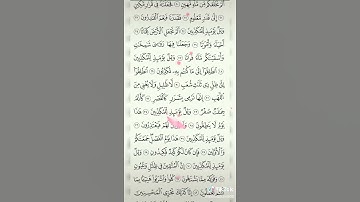 أَلَمْ نَخْلُقكُّم مِّن مَّآءٍ مَّهِينٍ ۝ فَجَعَلْنَٰهُ فِى قَرَارٍ مَّكِينٍ ۝
إِلَىٰ قَدَرٍ مَّعْلُومٍ ۝ فَقَدَرْنَا فَنِعْمَ ٱلْقَٰدِرُونَ ۝ وَيْلٌ
يَوْمَئِذٍ لِّلْمُكَذِّبِينَ ۝ أَلَمْ نَجْعَلِ ٱلْأَرْضَ كِفَاتًا ۝
أَحْيَآءً وَأَمْوَٰتًا ۝ وَجَعَلْنَا فِيهَا رَوَٰسِىَ شَٰمِخَٰتٍ
وَأَسْقَيْنَٰكُم مَّآءً فُرَاتًا ۝ وَيْلٌ يَوْمَئِذٍ لِّلْمُكَذِّبِينَ ۝
ٱنطَلِقُوٓا۟ إِلَىٰ مَا كُنتُم بِهِۦ تُكَذِّبُونَ ۝ ٱنطَلِقُوٓا۟
إِلَىٰ ظِلٍّ ذِى ثَلَٰثِ شُعَبٍ ۝ لَّا ظَلِيلٍ وَلَا يُغْنِى مِنَ
ٱللَّهَبِ ۝ إِنَّهَا تَرْمِى بِشَرَرٍ كَٱلْقَصْرِ ۝ كَأَنَّهُۥ
جِمَٰلَتٌ صُفْرٌ ۝ وَيْلٌ يَوْمَئِذٍ لِّلْمُكَذِّبِينَ ۝ هَٰذَا
يَوْمُ لَا يَنطِقُونَ ۝ وَلَا يُؤْذَنُ لَهُمْ فَيَعْتَذِرُونَ ۝
وَيْلٌ يَوْمَئِذٍ لِّلْمُكَذِّبِينَ ۝ هَٰذَا يَوْمُ ٱلْفَصْلِ جَمَعْنَٰكُمْ
وَٱلْأَوَّلِينَ ۝ فَإِن كَانَ لَكُمْ كَيْدٌ فَكِيدُونِ ۝ وَيْلٌ
يَوْمَئِذٍ لِّلْمُكَذِّبِينَ ۝ إِنَّ ٱلْمُتَّقِينَ فِى ظِلَٰلٍ وَعُيُونٍ
۝ وَفَوَٰكِهَ مِمَّا يَشْتَهُونَ ۝ كُلُوا۟ وَٱشْرَبُوا۟ هَنِيٓـًٔۢا بِمَا
كُنتُمْ تَعْمَلُونَ ۝ إِنَّا كَذَٰلِكَ نَجْزِى ٱلْمُحْسِنِينَ